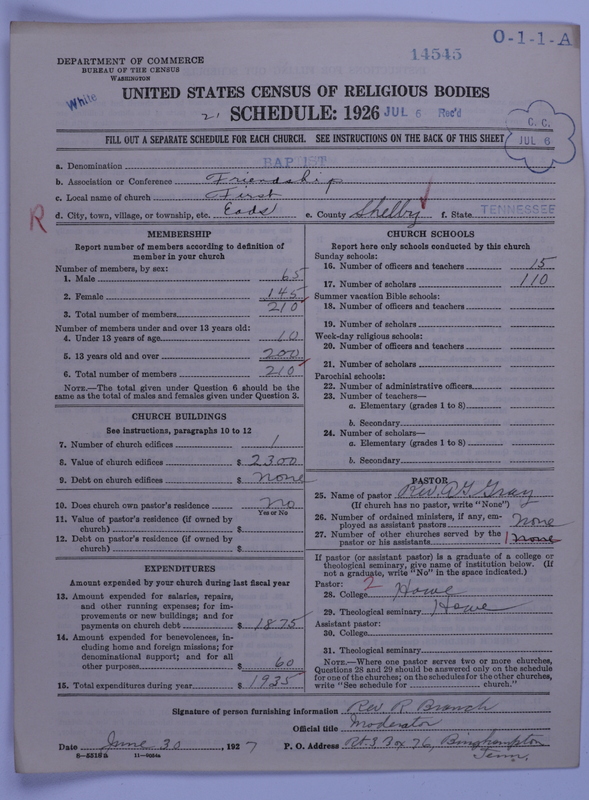 O-1-1-A
14545
DEPARTMENT OF COMMERCE
BUREAU OF THE CENSUS
WASHINGTON
White
UNITED STATES CENSUS OF RELIGIOUS BODIES
SCHEDULE: 1926 JUL 6 Rec'd
C. C.
JUL 6
FILL OUT A SEPARATE SCHEDULE FOR EACH CHURCH. SEE INSTRUCTIONS ON THE BACK OF THIS SHEET
a. Denomination BAPTIST
b. Association or Conference Friendship
c. Local name of church First
R d. City, town, village, or township, etc. Eads e. County Shelby f. State TENNESSEE
MEMBERSHIP
Report number of members according to definition of
member in your church
Number of members, by sex:
1. Male 65
2. Female 145
3. Total number of members 210
Number of members under and over 13 years old:
4. Under 13 years of age 10
5. 13 years old and over 200
6. Total number of members 210
NOTE.—The total given under Question 6 should be the
same as the total of males and females given under Question 3.
CHURCH BUILDINGS
See instructions, paragraphs 10 to 12
7. Number of church edifices 1
8. Value of church edifices $ 2300
9. Debt on church edifices $ None
10. Does church own pastor's residence No
Yes or No
11. Value of pastor's residence (if owned by
church) $
12. Debt on pastor's residence (if owned by
church) $
EXPENDITURES
Amount expended by your church during last fiscal year
13. Amount expended for salaries, repairs,
and other running expenses; for im-
provements or new buildings; and for
payments on church debt $ 1875
14. Amount expended for benevolences, in-
cluding home and foreign missions; for
denominational support; and for all
other purposes $ 60
15. Total expenditures during year $ 1935
CHURCH SCHOOLS
Report here only schools conducted by this church
Sunday schools:
16. Number of officers and teachers 15
17. Number of scholars 110
Summer vacation Bible schools:
18. Number of officers and teachers
19. Number of scholars
Week-day religious schools:
20. Number of officers and teachers
21. Number of scholars
Parochial schools:
22. Number of administrative officers
23. Number of teachers—
a. Elementary (grades 1 to 8)
b. Secondary
24. Number of scholars—
a. Elementary (grades 1 to 8)
b. Secondary
PASTOR
25. Name of pastor Rev. A. G. Gray
(If church has no pastor, write "None")
26. Number of ordained ministers, if any, em-
ployed as assistant pastors None
27. Number of other churches served by the
pastor or his assistants 1 None
If pastor (or assistant pastor) is a graduate of a college or
theological seminary, give name of institution below. (If
not a graduate, write "No" in the space indicated.)
Pastor: 2
28. College Howe
29. Theological seminary Howe
Assistant pastor:
30. College
31. Theological seminary
NOTE.—Where one pastor serves two or more churches,
Questions 28 and 29 should be answered only on the schedule
for one of the churches; on the schedules for the other churches,
write "See schedule for church."
Signature of person furnishing information Rev R. Branch
Official title Moderator
Date June 30, 1927 P. O. Address Rt. 3 Box 76, Binghampton
Tenn.